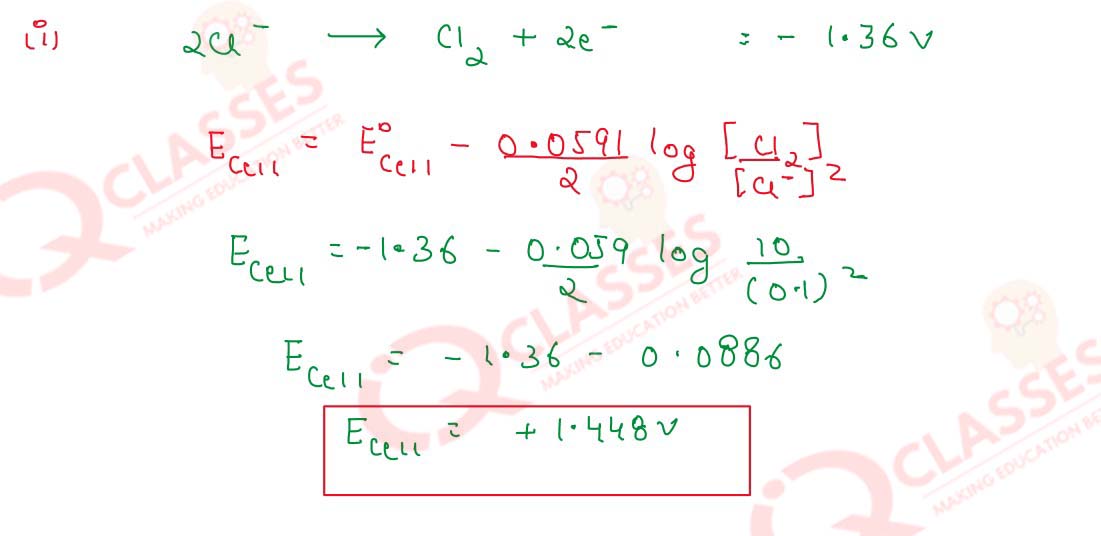 (i) 2Cl⁻ ⟶ Cl₂ + 2e⁻ = - 1.36 V
E_cell = E°_cell - 0.0591/2 log [Cl₂]/[Cl⁻]²
E_cell = -1.36 - 0.059/2 log 10/(0.1)²
E_cell = - 1.36 - 0.0886
E_cell = + 1.448 V
IQ CLASSES
MAKING EDUCATION BETTER
IQ CLASSES
MAKING EDUCATION BETTER
IQ CLASSES
MAKING EDUCATION BETTER